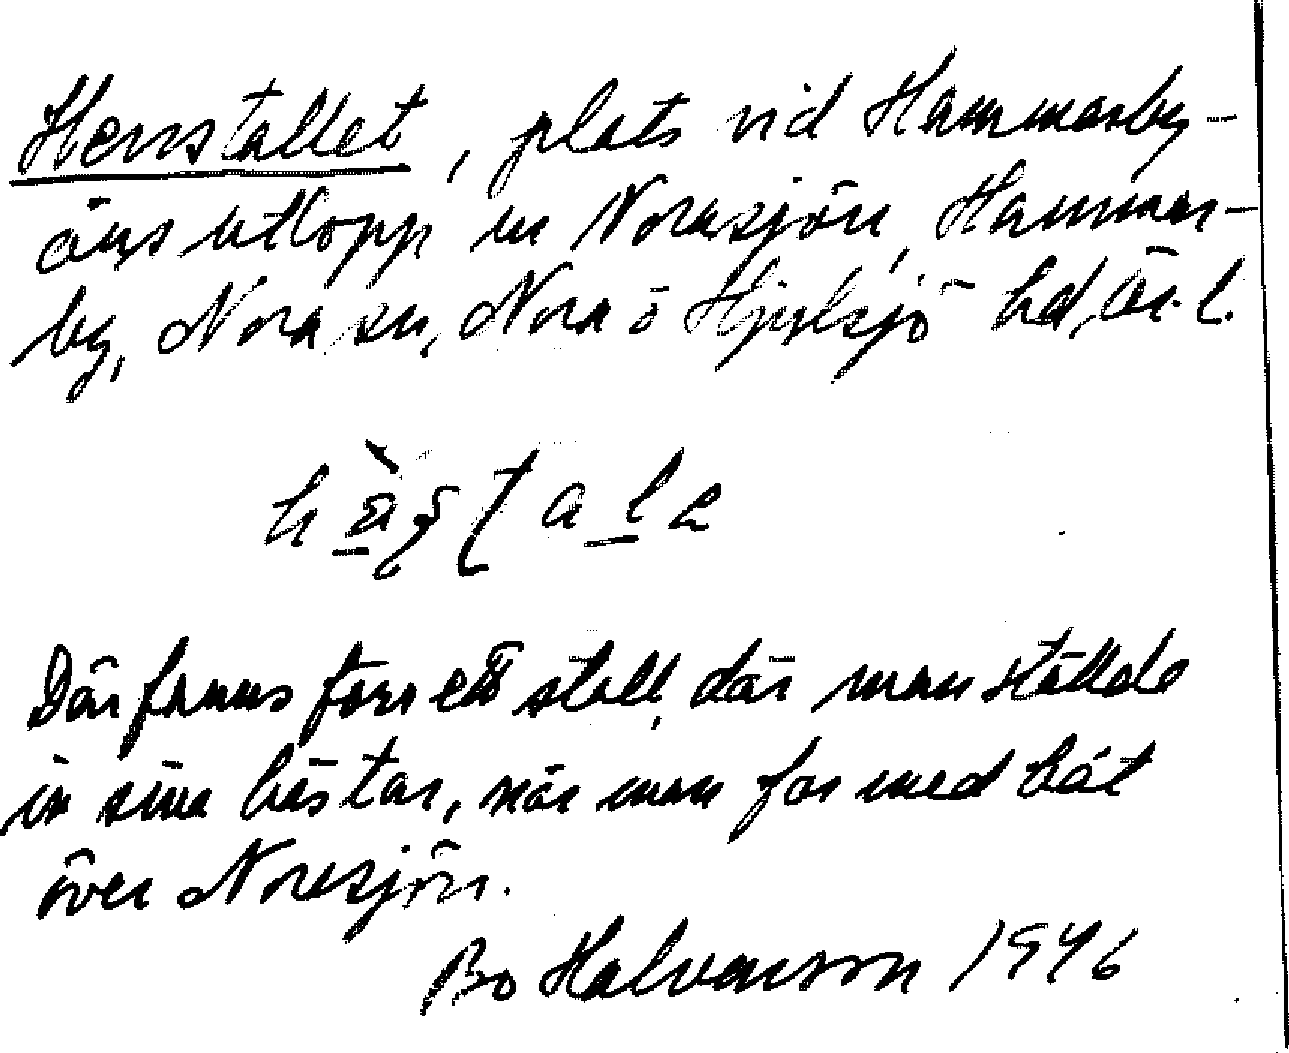 Herrstallet, plats vid Hammarby-
åns utlopp in Norasjön, Hammar-
by, Nora sn, Nora o Hjulsjö hd, Ör. l.
Där fanns förr ett stall, där man ställde
in sina hästar, när man for med båt
över Norasjön.
Bo Halvarsson 1946